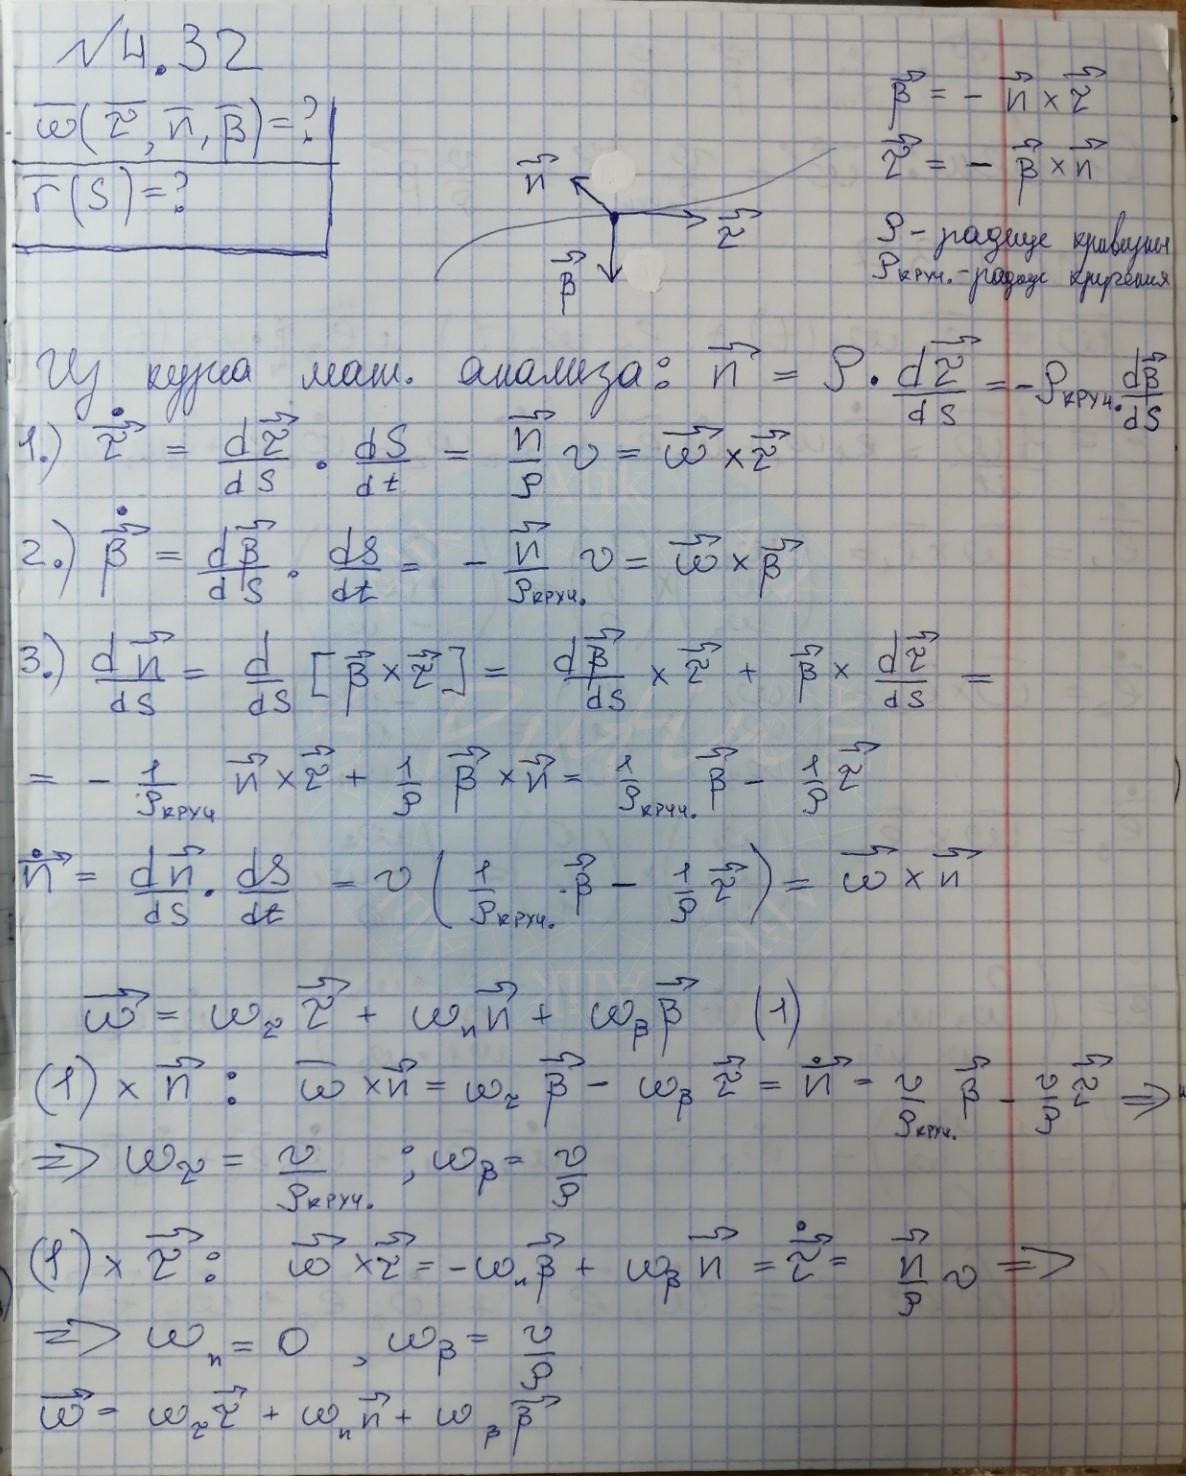 №4.32
ω̄(τ̄, n̄, β̄)=?
r̄(S)=?
n⃗
τ⃗
β⃗
β⃗ = - n⃗ × τ⃗
τ⃗ = - β⃗ × n⃗
ρ - радиус кривизны
ρкруч. - радиус кручения
Из курса мат. анализа: n⃗ = ρ · dτ⃗/dS = -ρкруч. dβ⃗/dS
1.) τ⃗̇ = dτ⃗/dS · dS/dt = n⃗/ρ v = ω⃗ × τ⃗
2.) β⃗̇ = dβ⃗/dS · dS/dt = - n⃗/ρкруч. v = ω⃗ × β⃗
3.) dn⃗/dS = d/dS [β⃗ × τ⃗] = dβ⃗/dS × τ⃗ + β⃗ × dτ⃗/dS =
= - 1/ρкруч n⃗ × τ⃗ + 1/ρ β⃗ × n⃗ = 1/ρкруч. β⃗ - 1/ρ τ⃗
n⃗̇ = dn⃗/dS · dS/dt = v (1/ρкруч. · β⃗ - 1/ρ τ⃗) = ω⃗ × n⃗
ω⃗ = ωτ τ⃗ + ωn n⃗ + ωβ β⃗ (1)
(1) × n⃗ : ω̄ × n⃗ = ωτ β⃗ - ωβ τ⃗ = n⃗̇ = v/ρкруч. β⃗ - v/ρ τ⃗ =>
=> ωτ = v/ρкруч. ; ωβ = v/ρ
(1) × τ⃗ : ω⃗ × τ⃗ = -ωn β⃗ + ωβ n⃗ = τ⃗̇ = n⃗/ρ v =>
=> ωn = 0 , ωβ = v/ρ
ω⃗ = ωτ τ⃗ + ωn n⃗ + ωβ β⃗